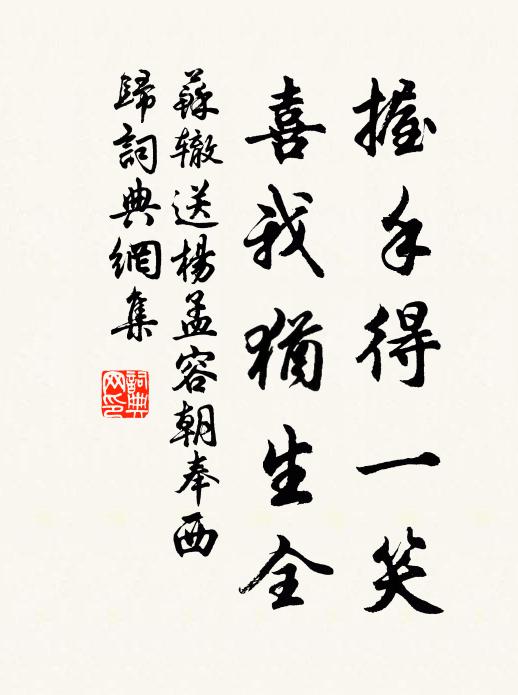 握手得一笑
喜我猶生全
蘇辙送楊孟容朝奉西
歸詞典網集
詞典
网印